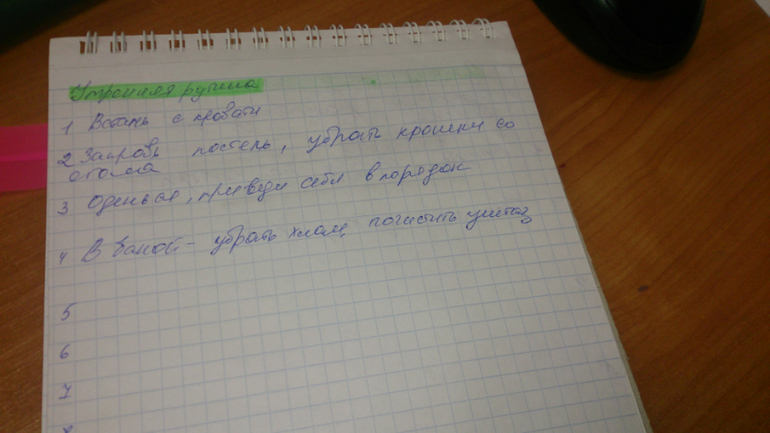 Утренняя рутина
1 Встань с кровати
2 Заправь постель, убрать крошки со
стола
3 Оденься, приведи себя в порядок
4 В ваной - убрать хлам, почистить унитаз
5
6
7
8